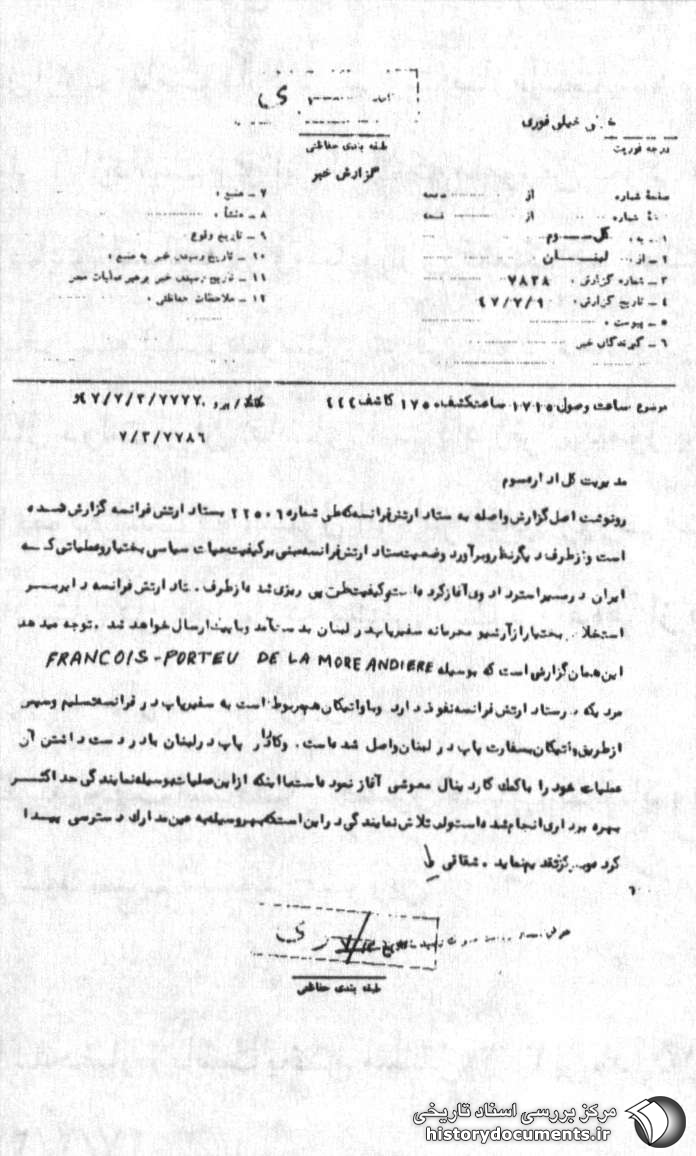 خیلی فوری
درجه فوریت
طبقه بندی حفاظتی
گزارش خبر
صفحهٔ شماره از صفحه
شماره از نسخه
۱ - به : کل سوم
۲ - از : لبنان
۳ - شماره گزارش : ۷۸۲۸
۴ - تاریخ گزارش : ۴۷/۷/۹
۵ - پیوست :
۶ - گیرندگان خبر
۷ - منبع :
۸ - منشأ :
۹ - تاریخ وقوع
۱۰ - تاریخ رسیدن خبر به منبع :
۱۱ - تاریخ رسیدن خبر برهبر عملیات
۱۲ - ملاحظات حفاظتی :
موضوع ساعت وصول ۱۷۱۵ ساعت کشف ۱۷۵۰ کاشف ۴۴۴
۴۷/۷/۲/۷۷۷۲
۷/۳/۷۷۸۶
مدیریت کل اداره سوم
رونوشت اصل گزارش واصله به ستاد ارتش فرانسه که طی شماره ۲۲۵۰۶ بستاد ارتش فرانسه گزارش شده
است و از طرف دیگر نظر و برآورد وضعیت ستاد ارتش فرانسه مبنی بر کیفیت حیات سیاسی بختیار و عملیاتی که
ایران در مسیر استرداد وی آغاز کرده است و کیفیت طرح پی ریزی شده از طرف ستاد ارتش فرانسه در ایر سر
استخلاص بختیار از آرشیو محرمانه سفیر پاپ در لبنان بدست آمد و با پیک ارسال خواهد شد . توجه میدهد
این همان گزارش است که بوسیله FRANCOIS-PORTEU DE LA MORE ANDIERE
مردیکه در ستاد ارتش فرانسه نفوذ دارد و با واتیکان هم مربوط است به سفیر پاپ در فرانسه تسلیم و سپس
از طریق واتیکان بسفارت پاپ در لبنان واصل شده است . و کاردار پاپ در لبنان با در دست داشتن آن
عملیات خود را با کمک کاردینال معوشی آغاز نموده است با اینکه از این عملیات بوسیله نمایندگی حداکثر
بهره برداری انجام شده است ولی تلاش نمایندگی در این است که بهر وسیله به عین مدارک دسترسی پیدا
کرده بمرکز تقدیم نماید . شقاقی
طبقه بندی حفاظتی
مرکز بررسی اسناد تاریخی
historydocuments.ir